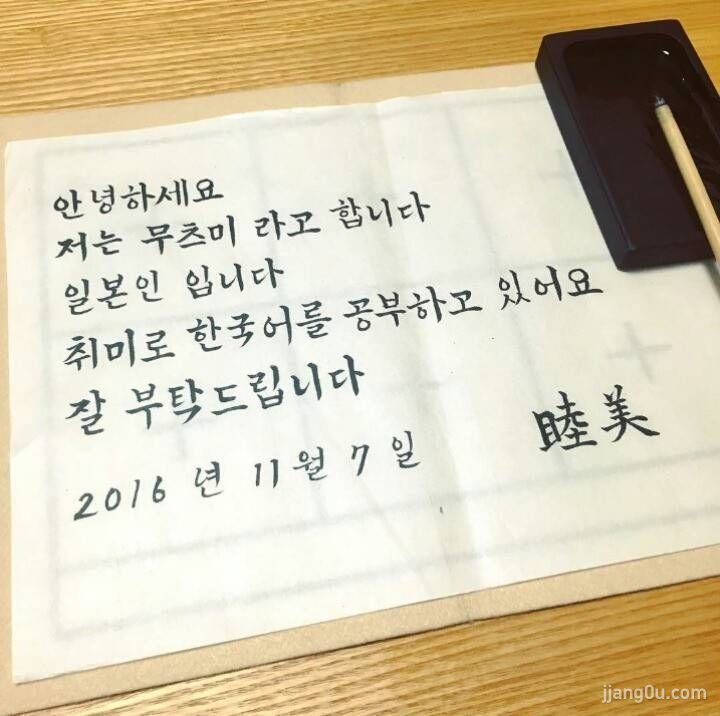 안녕하세요
저는 무츠미 라고 합니다
일본인 입니다
취미로 한국어를 공부하고 있어요
잘 부탁드립니다
2016 년 11월 7 일
睦美
jjang0u.com